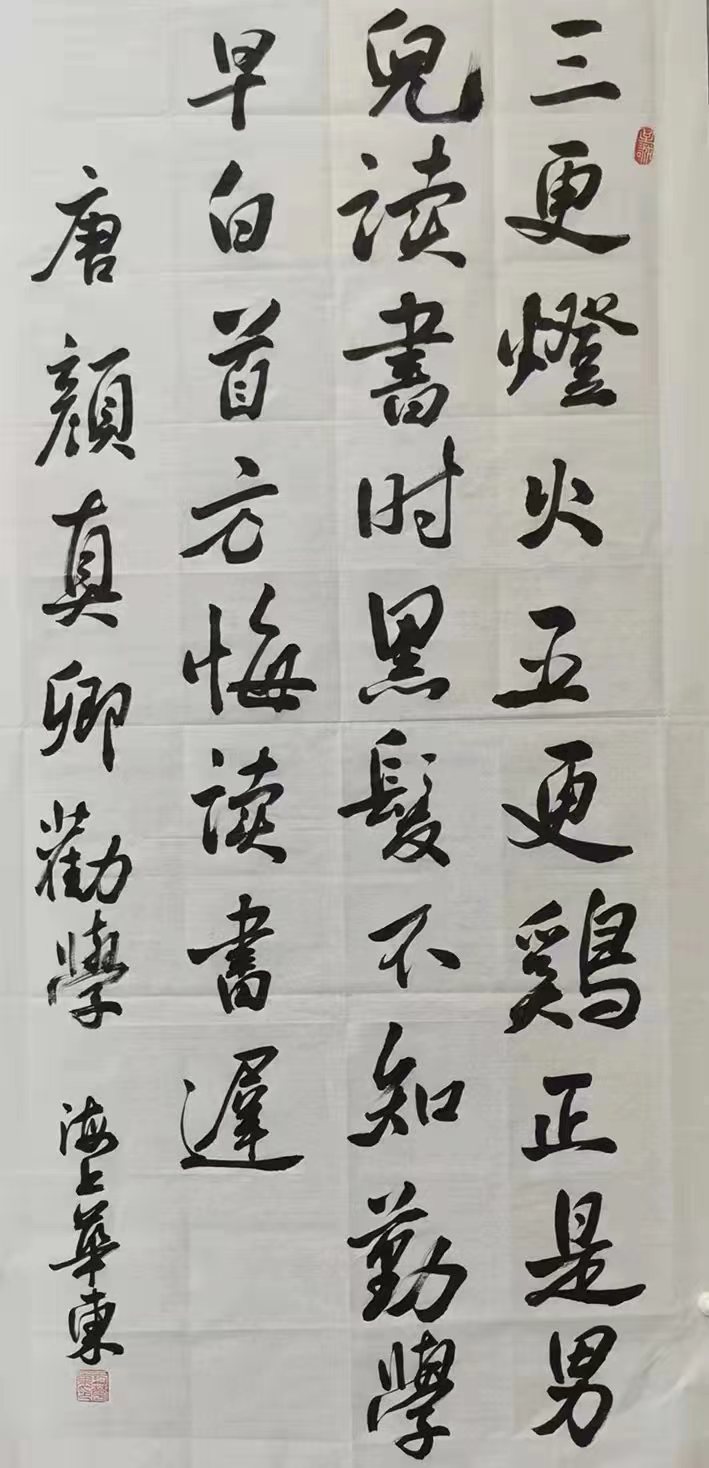 三更燈火五更鷄正是男
兒读書时黑髮不知勤學
早白首方悔读書遲
唐顔真卿勸學
海上華東